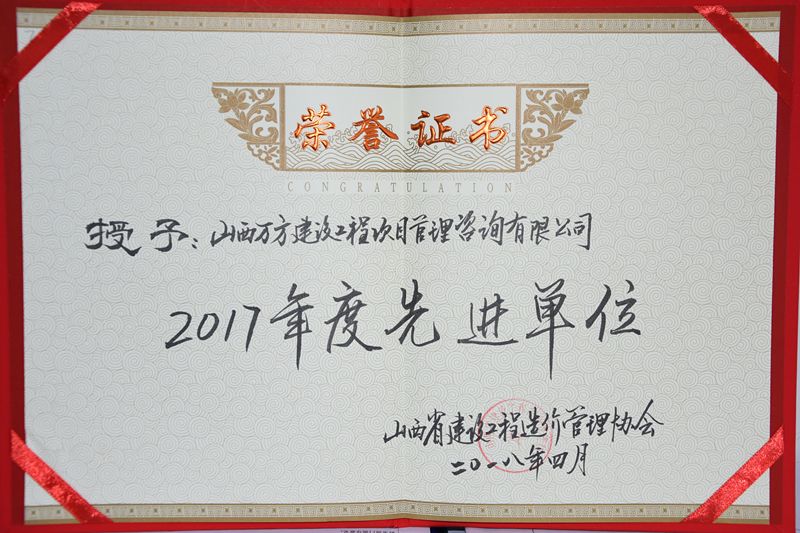 荣誉证书
CONGRATULATION
授予：山西万方建设工程项目管理咨询有限公司
2017年度先进单位
山西省建设工程造价管理协会
二〇一八年四月